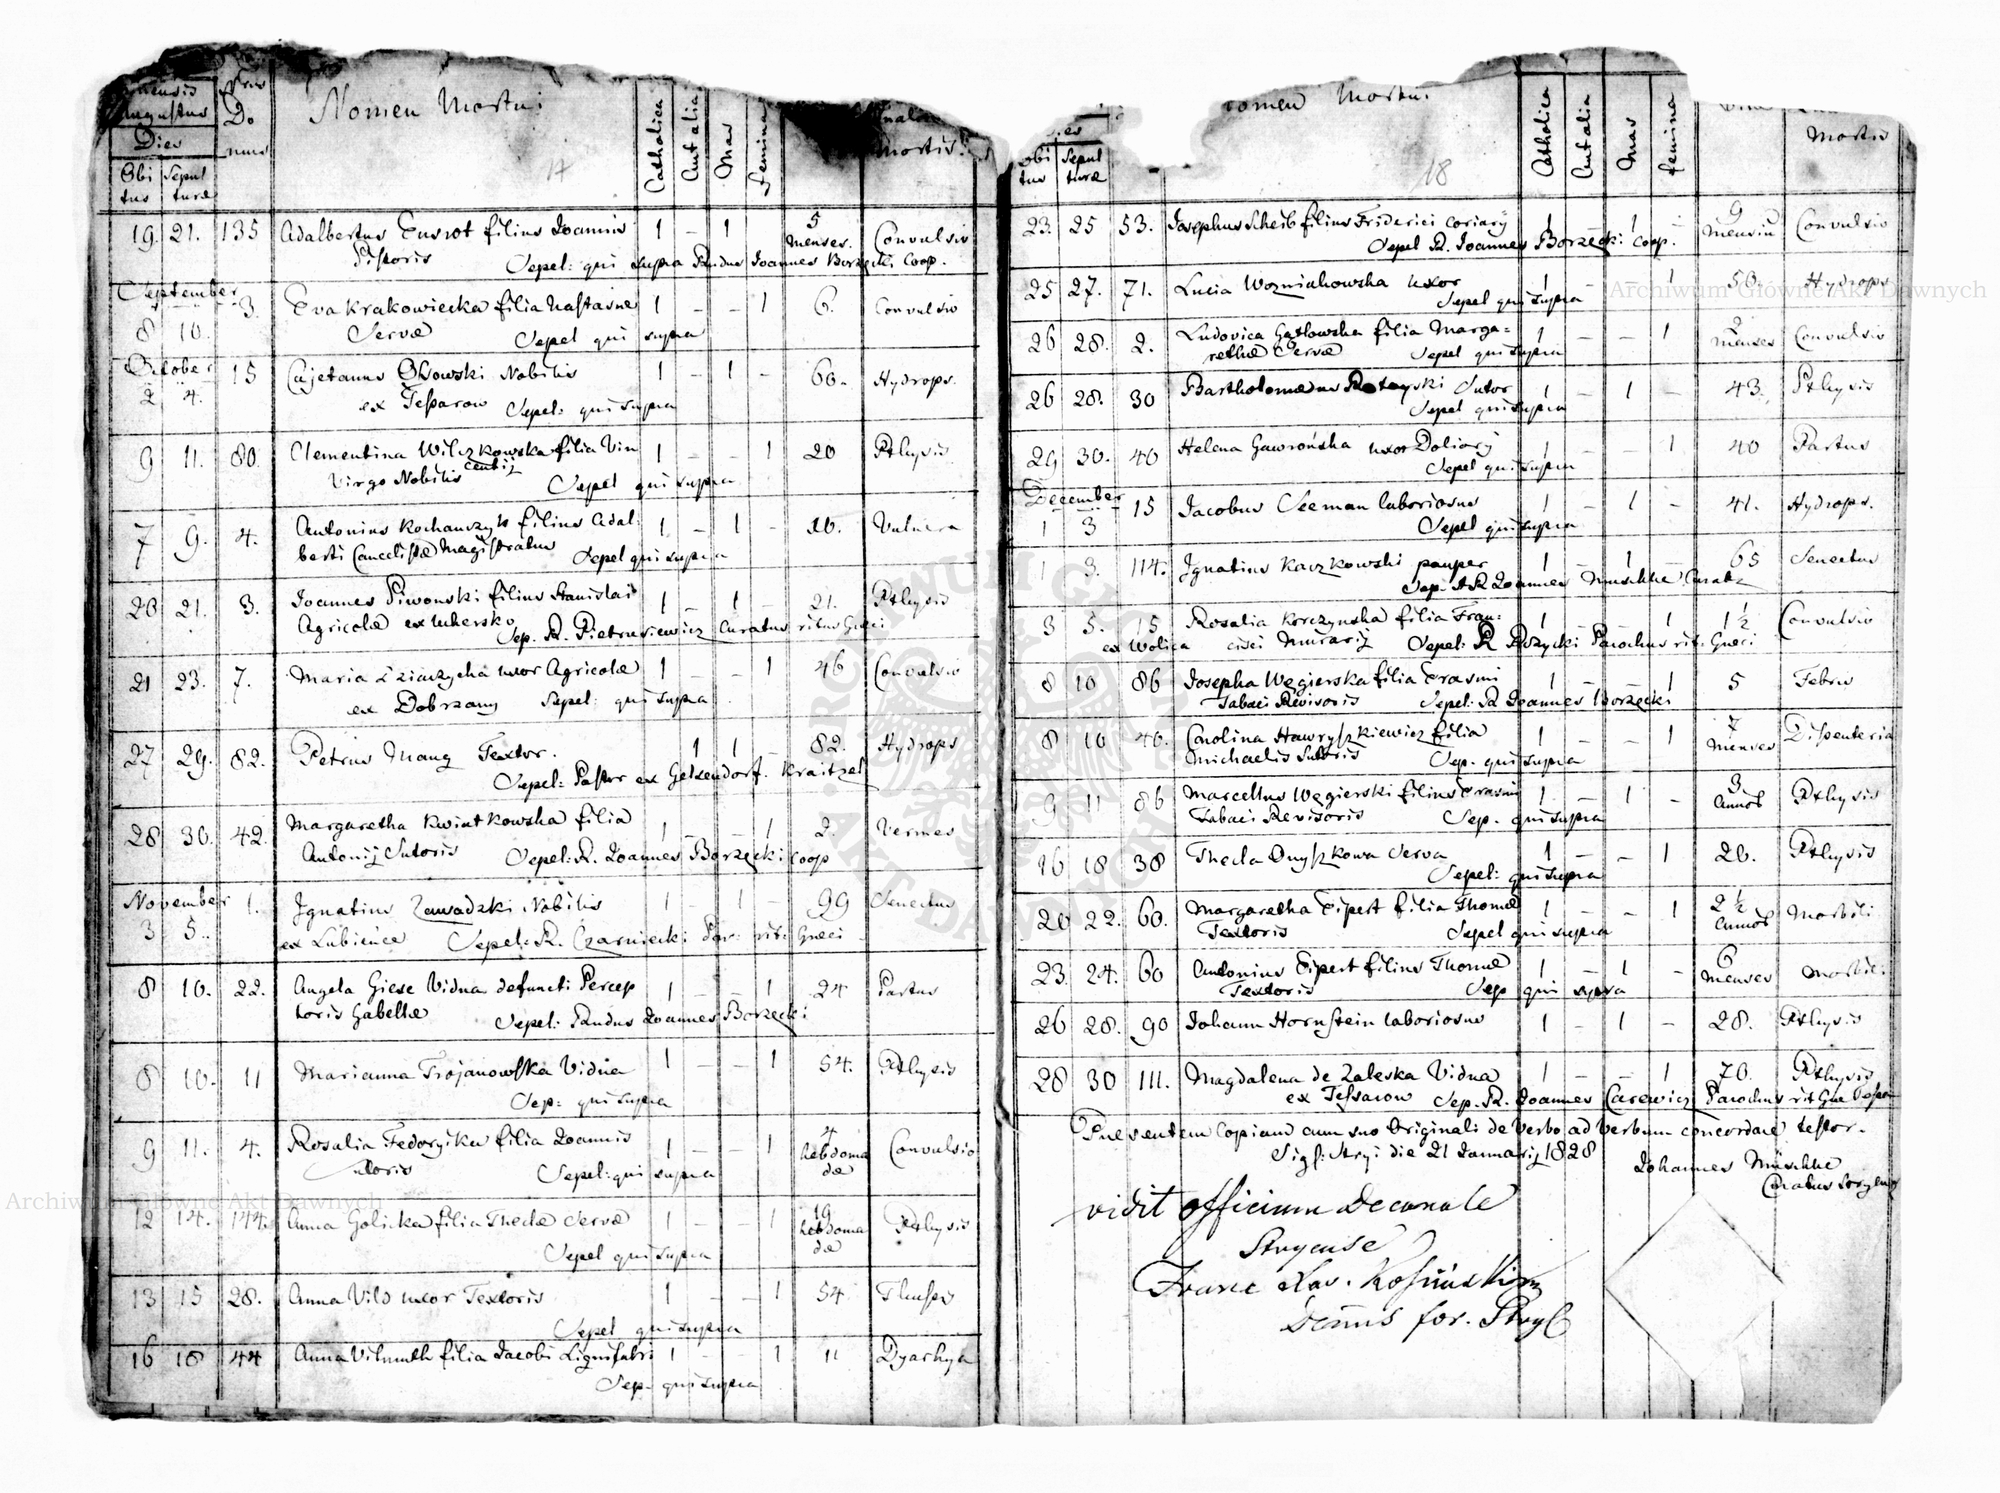 Mensis
Augustus
Dies
Obi
tus
Sepul
turæ
Nrus
Do
mus
Nomen Mortui
17
Catholica
Aut alia
Mas
Femina
Mortis
19. 21. 135 Adalbertus filius Joannis 1 - 1 5 menses. Convulsio
Pistoris Sepel: qui supra Rndus Joannes Borzęcki Coop.
September
8 10. 3. Eva Krakowiecka filia Nastasiæ 1 - - 1 6. Convulsio
Servæ Sepel qui supra
October
2 4. 15 Cajetanus Nobilis 1 - 1 - 60. Hydrops.
ex Tessarow Sepel: qui supra
9 11. 80. Clementina Wilczkowska filia Vin 1 - - 1 20 Pthysis.
centij
Virgo Nobilis Sepel qui supra
7 9. 4. Antonius filius Adal: 1 - 1 - 10. Vulnera
berti Cancelistæ Magistratus Sepel qui supra
20 21. 3. Joannes Piwonski filius Stanislai 1 - 1 - 21. Pthysis
Agricolæ ex Sep. R. Pietrusiewicz Curatus ritus Græci
21 23. 7. Maria uxor Agricolæ 1 - - 1 46 Convulsio
ex Dobrzany Sepel: qui supra
27 29. 82. Petrus Mang Textor. 1 1 - 82. Hydrops
Sepel: Pastor ex Gelsendorf. Kraitzel
28 30. 42. Margaretha Kwiatkowska filia 1 - - 1 2. Vermes
Antonij Sutoris Sepel: R. Joannes Borzęcki Coop
November
3 5. 1. Ignatius Zawadzki Nobilis 1 - 1 - 99 Senectus
ex Lubience Sepel: R. Czarniecki Par: rit: Græci
8 10. 22. Angela Giese Vidua defuncti Percep 1 - - 1 24 Partus
toris Gabellæ Sepel: Rndus Joannes Borzęcki
8 10. 11 Marianna Trojanowska Vidua 1 - - 1 54. Pthysis
Sep: qui supra
9 11. 4. Rosalia filia Joannis 1 - - 1 4 hebdoma
dæ Convulsio
Sutoris Sepel: qui supra
12 14. 144. Anna Golicka filia Theclæ Servæ 1 - - 1 19 hebdoma
dæ Pthysis
Sepel qui supra
13 15 28. Anna Vild uxor Textoris 1 - - 1 54
Sepel qui supra
16 18 44 Anna Vilmuth filia Jacobi Lignifabri 1 - - 1 11
Sep. qui supra
Dies
Obi
tus
Sepul
turæ
Nomen Mortui
18
Catholica
Aut alia
Mas
Femina
Mortis
23. 25 53. Josephus Scheib filius Friderici Coriarij 1 1 - 9 mensium Convulsio
Sepel R. Joannes Borzęcki Coop.
25 27. 71. Lucia Wozniakowska uxor 1 - - 1 50. Hydrops
Sepel qui supra
26 28. 2. Ludovica filia Marga= 1 - - 1 2 menses Convulsio
rethæ Servæ Sepel qui supra
26 28. 30 Bartholomæus Sutor 1 - 1 - 43. Pthysis
Sepel qui supra
29 30. 40 Helena Gawrońska uxor Doliarij 1 - - 1 40 Partus
Sepel qui supra
December
1 3 15 Jacobus Seeman laboriosus 1 - 1 - 41. Hydrops.
Sepel qui supra
1 3. 114. Ignatius Kaczkowski pauper 1 - 1 - 65 Senectus
Sep: R Joannes Muschke Curatus
3 5. 15 Rosalia Korczynska filia Fran: 1 - - 1 1½ Convulsio
ex Wolica cisci Murarij Sepel: R Parochus rit. Græci
8 10 86 Josepha Węgierska filia Erasmi 1 - - 1 5 Febris
Tabaci Revisoris Sepel: R Joannes Borzęcki
8 10 40. Carolina Hawryszkiewicz filia 1 - - 1 7 menses Dissenteria
Michaelis Sutoris Sep. qui supra
9 11 86 Marcellus Węgierski filius Erasmi 1 - 1 - 3 Annos Pthysis
Tabaci Revisoris Sep. qui supra
16 18 38 Thecla Onyszkowa Serva 1 - - 1 26. Pthysis
Sepel: qui supra
20 22. 60. Margaretha Eipert filia Thomæ 1 - - 1 2½ Annos Morbili
Textoris Sepel qui supra
23. 24. 60 Antonius Eipert filius Thomæ 1 - 1 - 6 menses Morbili
Textoris Sep qui supra
26 28. 90 Johann Hornstein laboriosus 1 - 1 - 28. Pthysis
28 30 111. Magdalena de Zaleska Vidua 1 - - 1 70. Pthysis
ex Tessarow Sep. R. Joannes Carewicz Parochus rit Græ
Præsentem Copiam cum suo Originali de Verbo ad Verbum concordare testor.
Sigl: Stryi die 21 Januarij 1828
Johannes Müschke
Curatus Stryensis
vidit officium Decanale
Stryense
Franc Xav. Kosiński
for. Stryi
Archiwum Główne Akt Dawnych
Archiwum Główne Akt Dawnych
ARCHIWUM GŁÓWNE AKT DAWNYCH